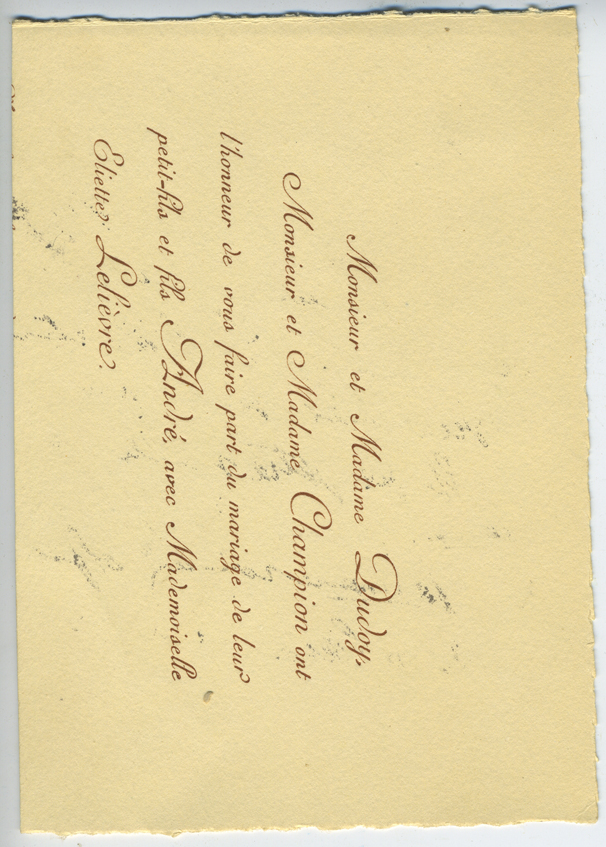 Monsieur et Madame Dudoy,
Monsieur et Madame Champion ont
l'honneur de vous faire part du mariage de leur
petit-fils et fils André, avec Mademoiselle
Eliette Lelièvre.